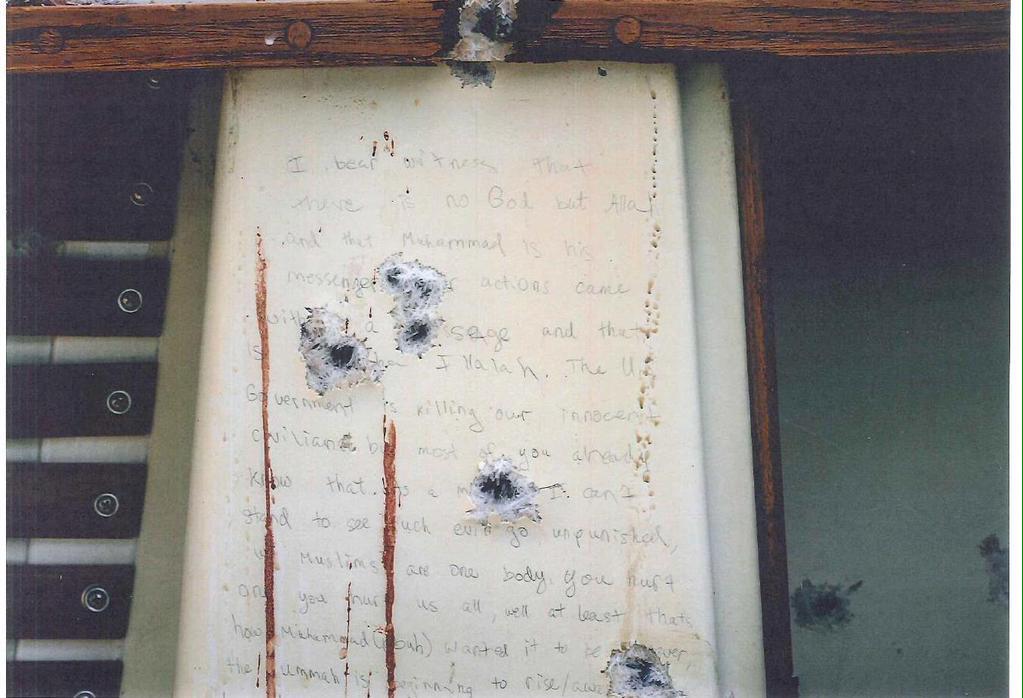 I bear witness that
there is no God but Alla
and that Muhammad is his
messenger actions came
with a sage and that
is Illalah. The U
Government is killing our innocent
civilians but most of you already
know that. As a M I can't
stand to see such evil go unpunished,
we Muslims are one body, you hurt
one you hurt us all, well at least thats
how Muhammad (pbuh) wanted it to be ever,
the ummah is beginning to rise/awa